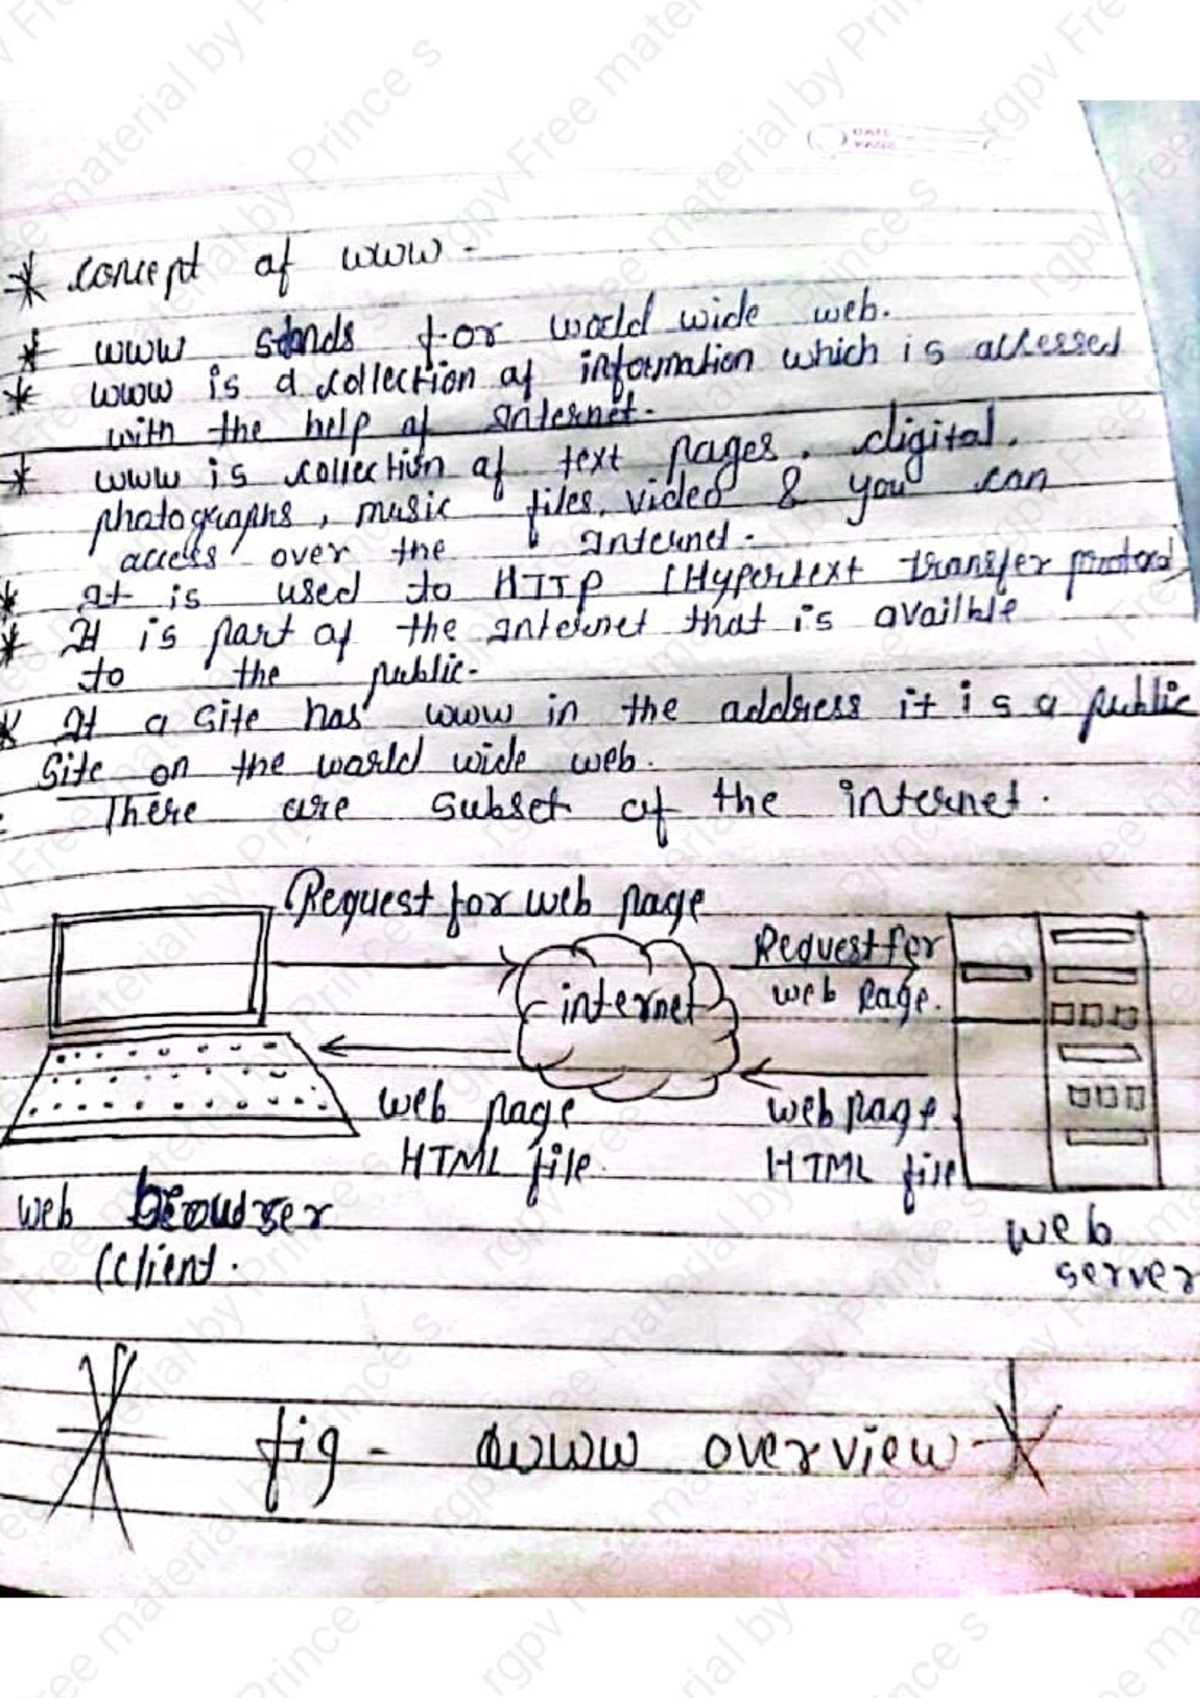 DATE
PAGE
* concept of www -
* www stands for world wide web.
* www is a collection of information which is accessed
with the help of Internet.
* www is collection of text pages, digital,
photographs, music files, video & you can
access over the Internet.
* It is used to HTTP (Hypertext transfer protocol)
* It is part of the Internet that is availble
to the public.
* If a site has www in the address it is a public
site on the world wide web.
There are subset of the internet.
Request for web page
internet
Request for
web page.
web page
HTML file.
web page
HTML file
web browser
(client.
web
server
fig - www overview
rgpv Free material by Prince s